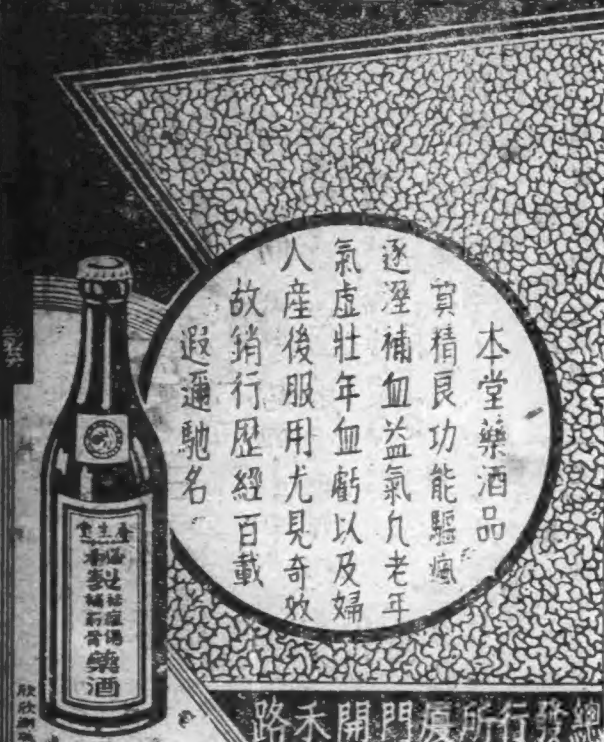 本堂藥酒品
質精良功能驅瘋
逐溼補血益氣凢老年
氣虛壯年血虧以及婦
人產後服用尤見奇效
故銷行歷經百載
遐邇馳名
生堂
製
藥酒
總發行所廈門開禾路
欣欣